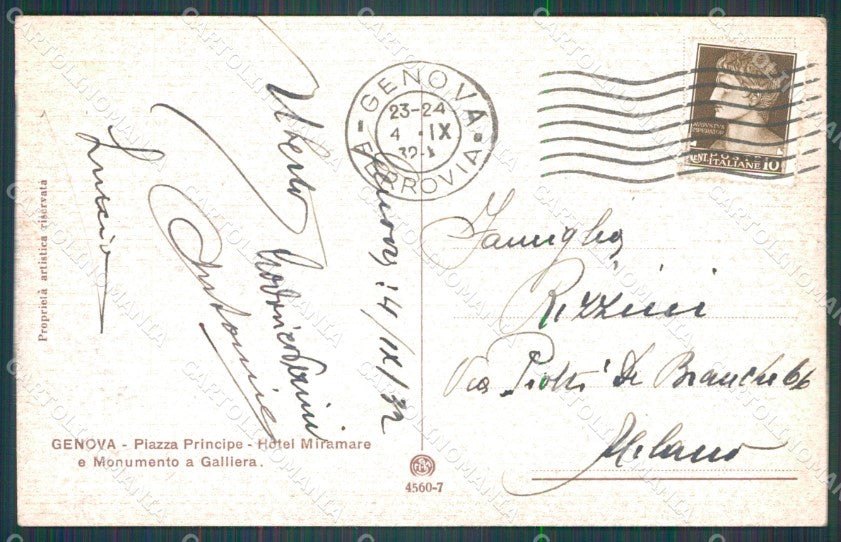 GENOVA
23-24
4 . IX
32
FERROVIA
POSTE
ITALIANE 10
Genova, 4/IX/32
Uberto
Antonio
Luccio
Famiglia
Rizzini
Via Piolti De Bianchi 66
Milano
Proprietà artistica riservata
GENOVA - Piazza Principe - Hotel Miramare
e Monumento a Galliera.
4560-7
CARTOLINOMANIA